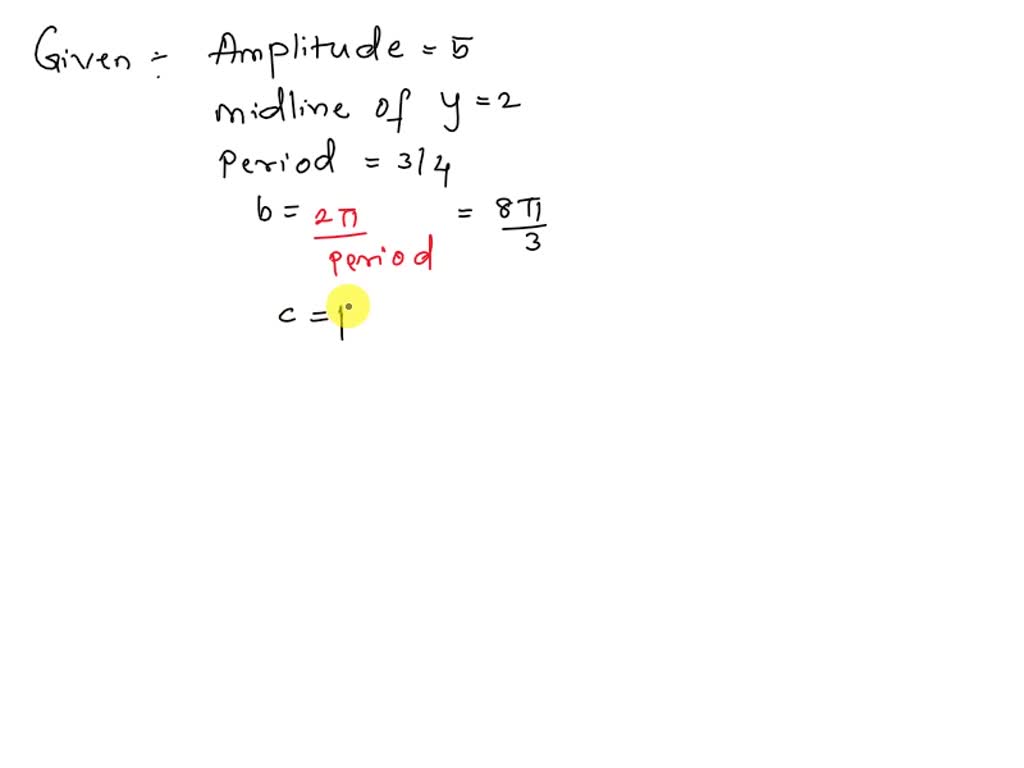 Given ÷ Amplitude = 5
midline of y = 2
period = 3/4
b = 2π/period = 8π/3
c = p